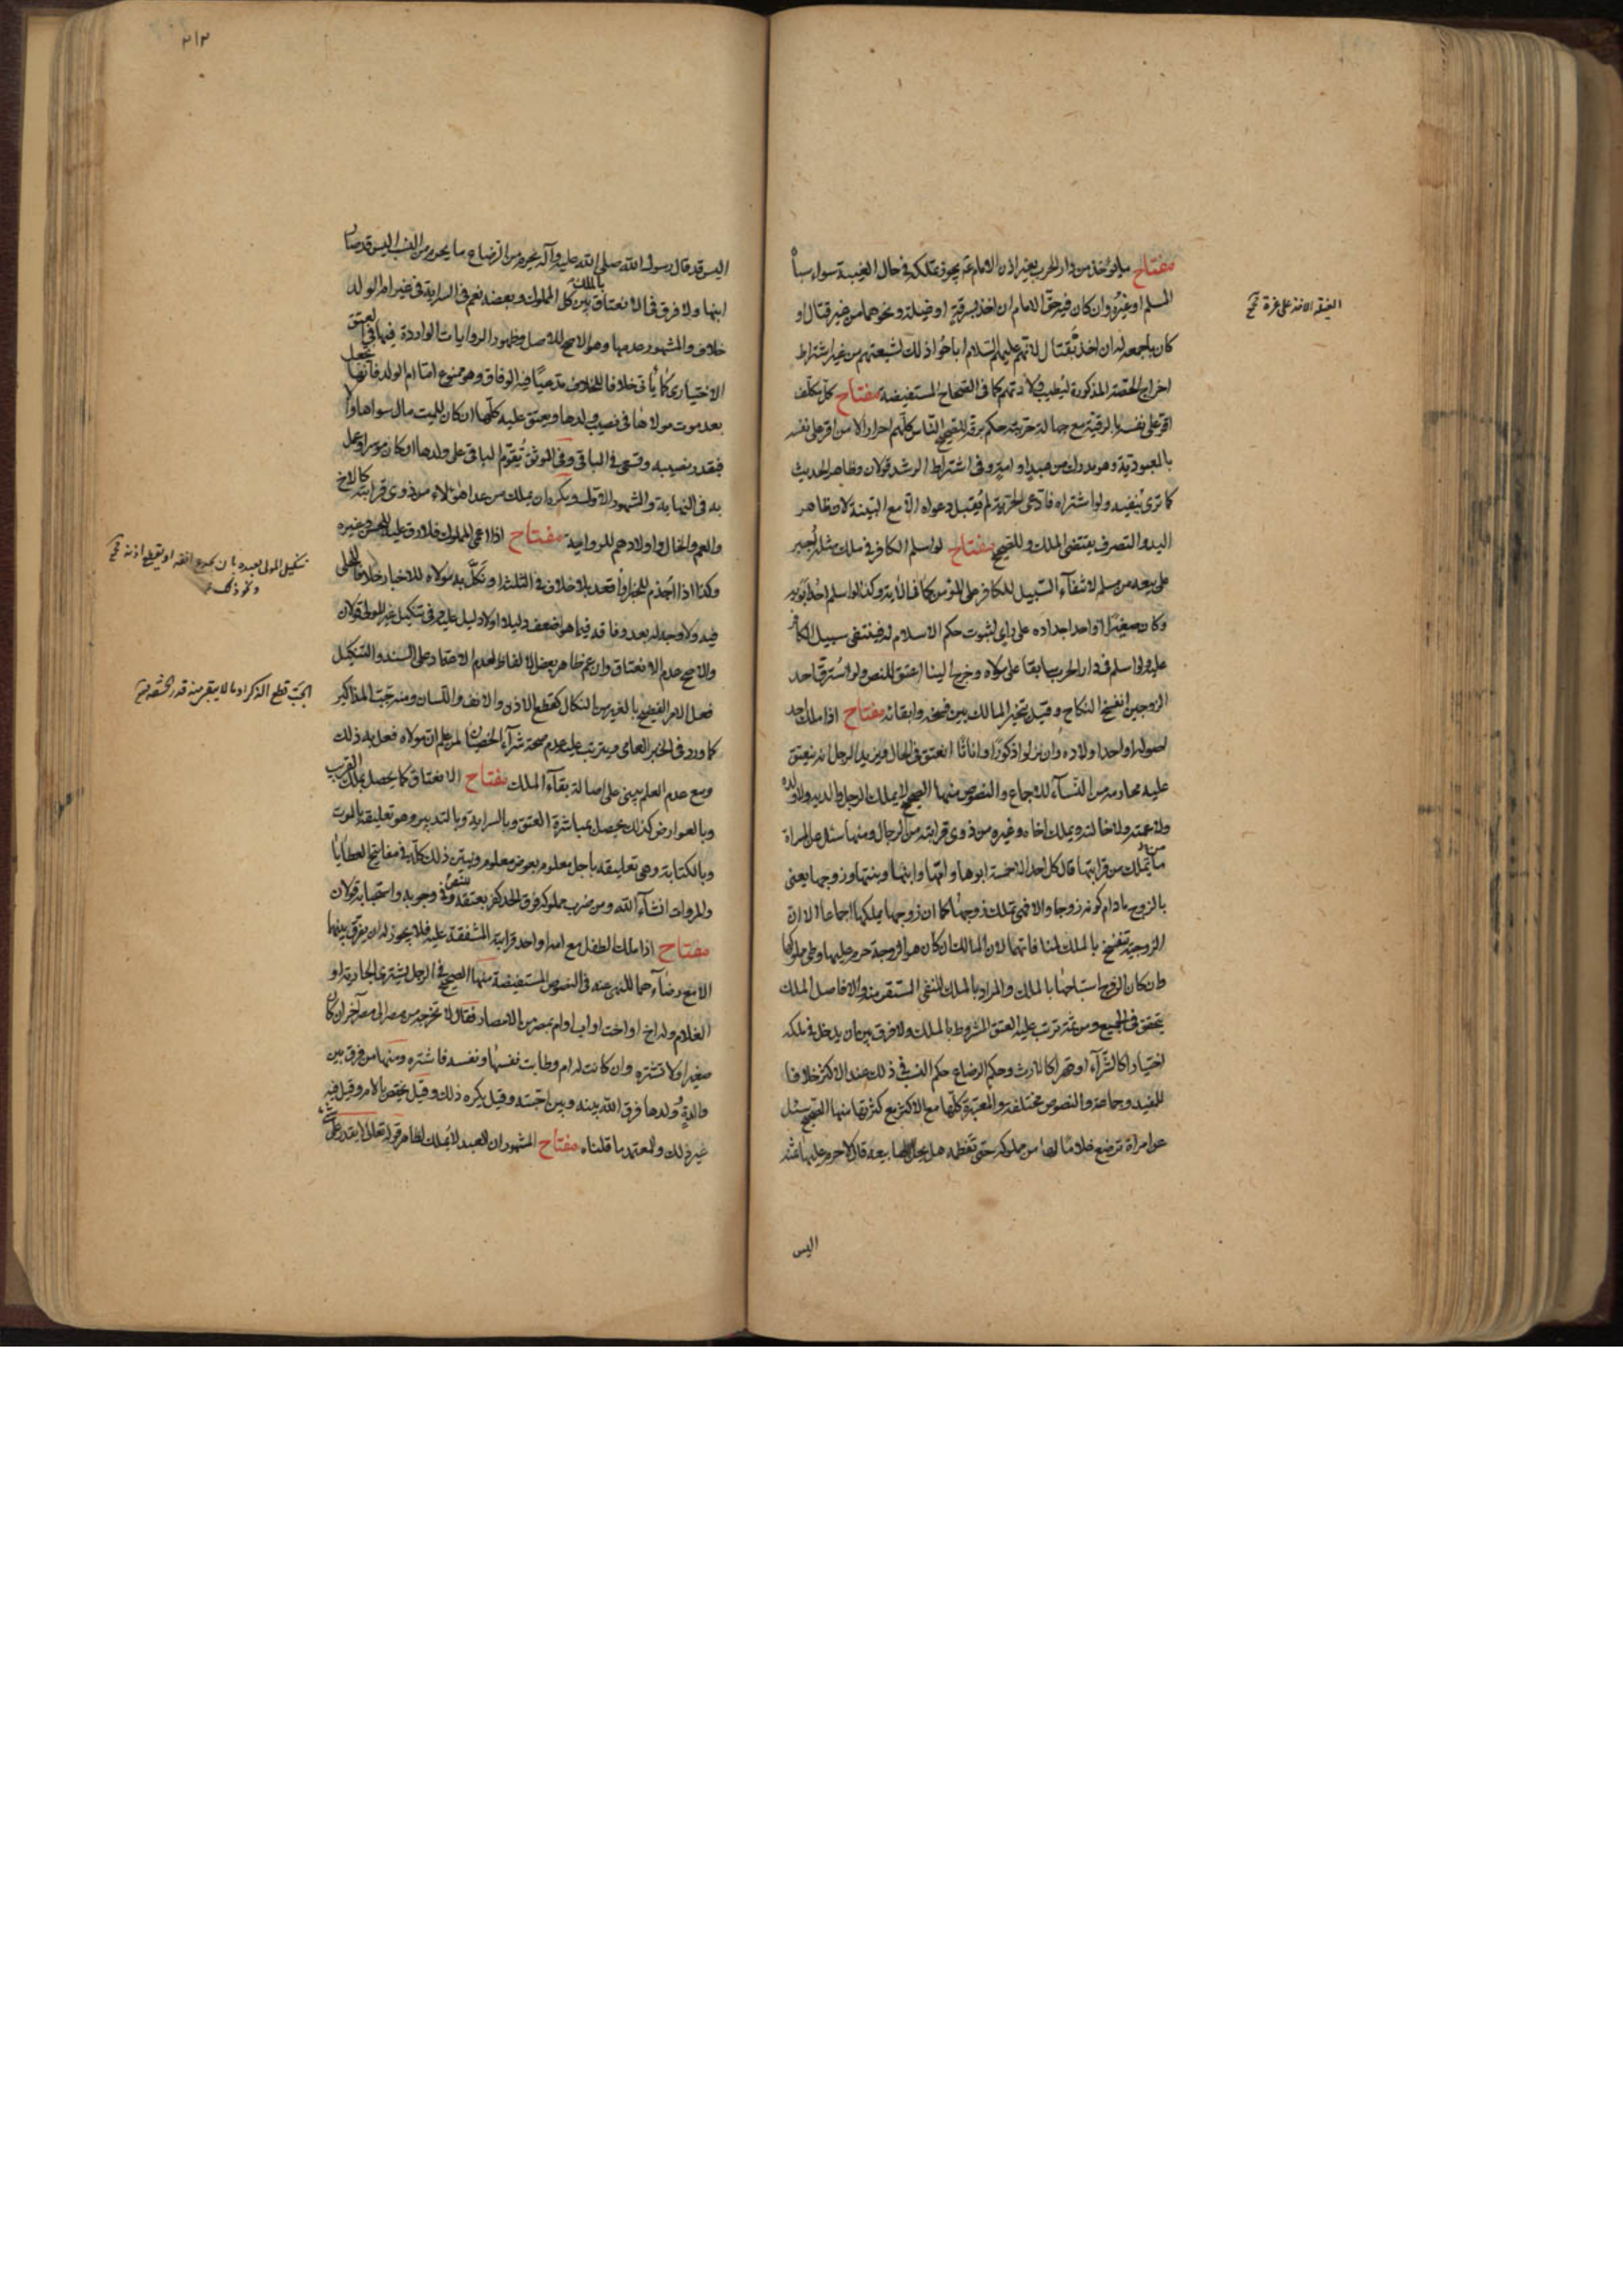 مفتاح ما يؤخذ من دار الحرب بغير اذن الامام عم يجوز تملكه في حال الغيبة سواء سباه
المسلم او غيره وان كان فيه حق الامام ان اخذ بسرقة او غيلة ونحوهما من غير قتال او
كان باجمعه له ان اخذ بقتال لانهم عليهم السلام اباحوا ذلك لشيعتهم من غير اشتراط
اخراج الحصة المذكورة ليطيب ولادتهم كما في الصحاح المستفيضة مفتاح كل مكلف
اقر على نفسه بالرقية مع جهالة حريته حكم برقه للصحيح الناس كلهم احرار الا من اقر على نفسه
بالعبودية وهو مدرك من عبد او امة وفي اشتراط الرشد قولان وظاهر الحديث
كما ترى ينفيه ولو اشتراه فادعى الحرية لم يقبل دعواه الا مع البينة لان ظاهر
اليد والتصرف يقتضى الملك وللصحيح مفتاح لو اسلم الكافر في ملك مثله اجبر
على بيعه من مسلم لانتفاء السبيل للكافر على المؤمن كما في الاية وكذا لو اسلم احد ابويه
وكان صغيرا او احد اجداده على راى لثبوت حكم الاسلام له فينتفى سبيل الكافر
عليه ولو اسلم في دار الحرب سابقا على مولاه وخرج الينا اعتق للنص ولو استرق احد
الزوجين انفسخ النكاح وقيل يتخير المالك بين فسخه وابقائه مفتاح اذا ملك احد
اصوله او احد اولاده وان نزلوا ذكورا او اناثا انعتق في الحال ويزيد الرجل انه ينعتق
عليه محارمه من النساء للاجماع والنصوص منها الصحيح لا يملك الرجل والديه ولا ولده
ولا عمته ولا خالته ويملك اخاه وغيره من ذوى قرابته من الرجال ومنها سئل عن المراة
ما تملك من قرابتها قال كل احد الا خمسة ابوها وامها وابنها وبنتها وزوجها يعنى
بالزوج ما دام كونه زوجا والا فهى تملك زوجها كما ان زوجها يملكها اجماعا الا ان
الزوجية تنفسخ بالملك لمنافاتهما لان المالك ان كان هو الزوجة حرم عليها وطى مملوكها
وان كان الزوج استباحها بالملك والمراد بالملك المنفى المستقر منه والا فاصل الملك
يتحقق في الجميع ومن ثمة ترتب عليه العتق المشروط بالملك ولا فرق بين ان يدخل في ملكه
اختيارا كالشراء او قهرا كالارث وحكم الرضاع حكم النسب في ذلك عند الاكثر خلافا
للمفيد وجماعة والنصوص مختلفة والمعتبرة كلها مع الاكثر مع كثرتها منها الصحيح سئل
عن امراة ترضع غلاما لها من مملوكة حتى تفطمه هل يحل لها بيعه قال لا حرم عليها ثمنه
اليس
الغيلة الاخذ على غرة
٢١٢
اليس قد قال رسول الله صلى الله عليه وآله يحرم من الرضاع ما يحرم من النسب اليس قد صار
ابنها ولا فرق في الانعتاق بالملك بين كل المملوك وبعضه نعم في السراية في غير ام الولد
خلاف والمشهور عدمها وهو الاصح للاصل وظهور الروايات الواردة فيها في العتق
الاختيارى كما ياتى خلافا للخلاف مدعيا فيه الوفاق وهو ممنوع اما ام الولد فانها تجعل
بعد موت مولاها في نصيب ولدها ويعتق عليه كلها ان كان للميت مال سواها والا
فبقدر نصيبه وتسعى في الباقى وفي الموثق يقوم الباقى على ولدها ان كان موسرا وعمل
به في النهاية والمشهور الاول ويكره ان يملك من عدا هؤلاء من ذوى قرابته كالاخ
والعم والخال واولادهم للرواية مفتاح اذا عمى المملوك فلا رق عليه للحسن وغيره
وكذا اذا اجذم للخبر او اقعد بلا خلاف في الثلثة او نكل به مولاه للاخبار خلافا للحلى
فيه ولا وجه له بعد وفاقه فيما هو اضعف دليلا او لا دليل عليه وفي تنكيل غير المولى قولان
والاصح عدم الانعتاق وان عم ظاهر بعض الالفاظ لعدم الاعتماد على السند والتنكيل
فعل الامر الفضيع بالغير من النكال كقطع الاذن والانف واللسان ومنه جب المذاكير
كما ورد في الخبر العامى ويترتب عليه عدم صحة شراء الخصيان لمن علم ان مولاه فعل به ذلك
ومع عدم العلم يبنى على اصالة بقاء الملك مفتاح الانعتاق كما يحصل بملك القريب
وبالعوارض كذلك يحصل بمباشرة العتق وبالسراية وبالتدبير وهو تعليقه بالموت
وبالكتابة وهى تعليقه باجل معلوم بعوض معلوم ونبين ذلك كله في مفاتيح العطايا
والمروات انشاء الله ومن ضرب مملوكه فوق الحد كفر بعتقه للنص وفي وجوبه واستحبابه قولان
مفتاح اذا ملك الطفل مع امه او احد قرابته المشفقة عليه فلا يجوز له ان يفرق بينهما
الا مع رضاءهما للنهى عنه في النصوص المستفيضة منها الصحيح في الرجل يشترى الجارية او
الغلام وله اخ او اخت او اب او ام بمصر من الامصار فقال لا تخرجه من مصر الى مصر آخر ان كان
صغيرا ولا تشتره وان كانت له ام وطابت نفسها ونفسه فاشتره ومنها من فرق بين
والدة وولدها فرق الله بينه وبين احبته وقيل يكره ذلك وقيل يختص بالام وقيل فيه
غير ذلك والمعتمد ما قلناه مفتاح المشهور ان العبد لا يملك لظاهر قوله تعالى لا يقدر على شئ
تنكيل المولى لعبده بان يجدع انفه او يقطع اذنه
ونحو ذلك
الجب قطع الذكر او ما لا يبقى منه قدر الحشفة